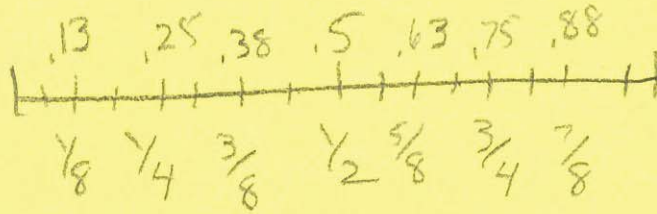 .13 .25 .38 .5 .63 .75 .88
1/8 1/4 3/8 1/2 5/8 3/4 7/8